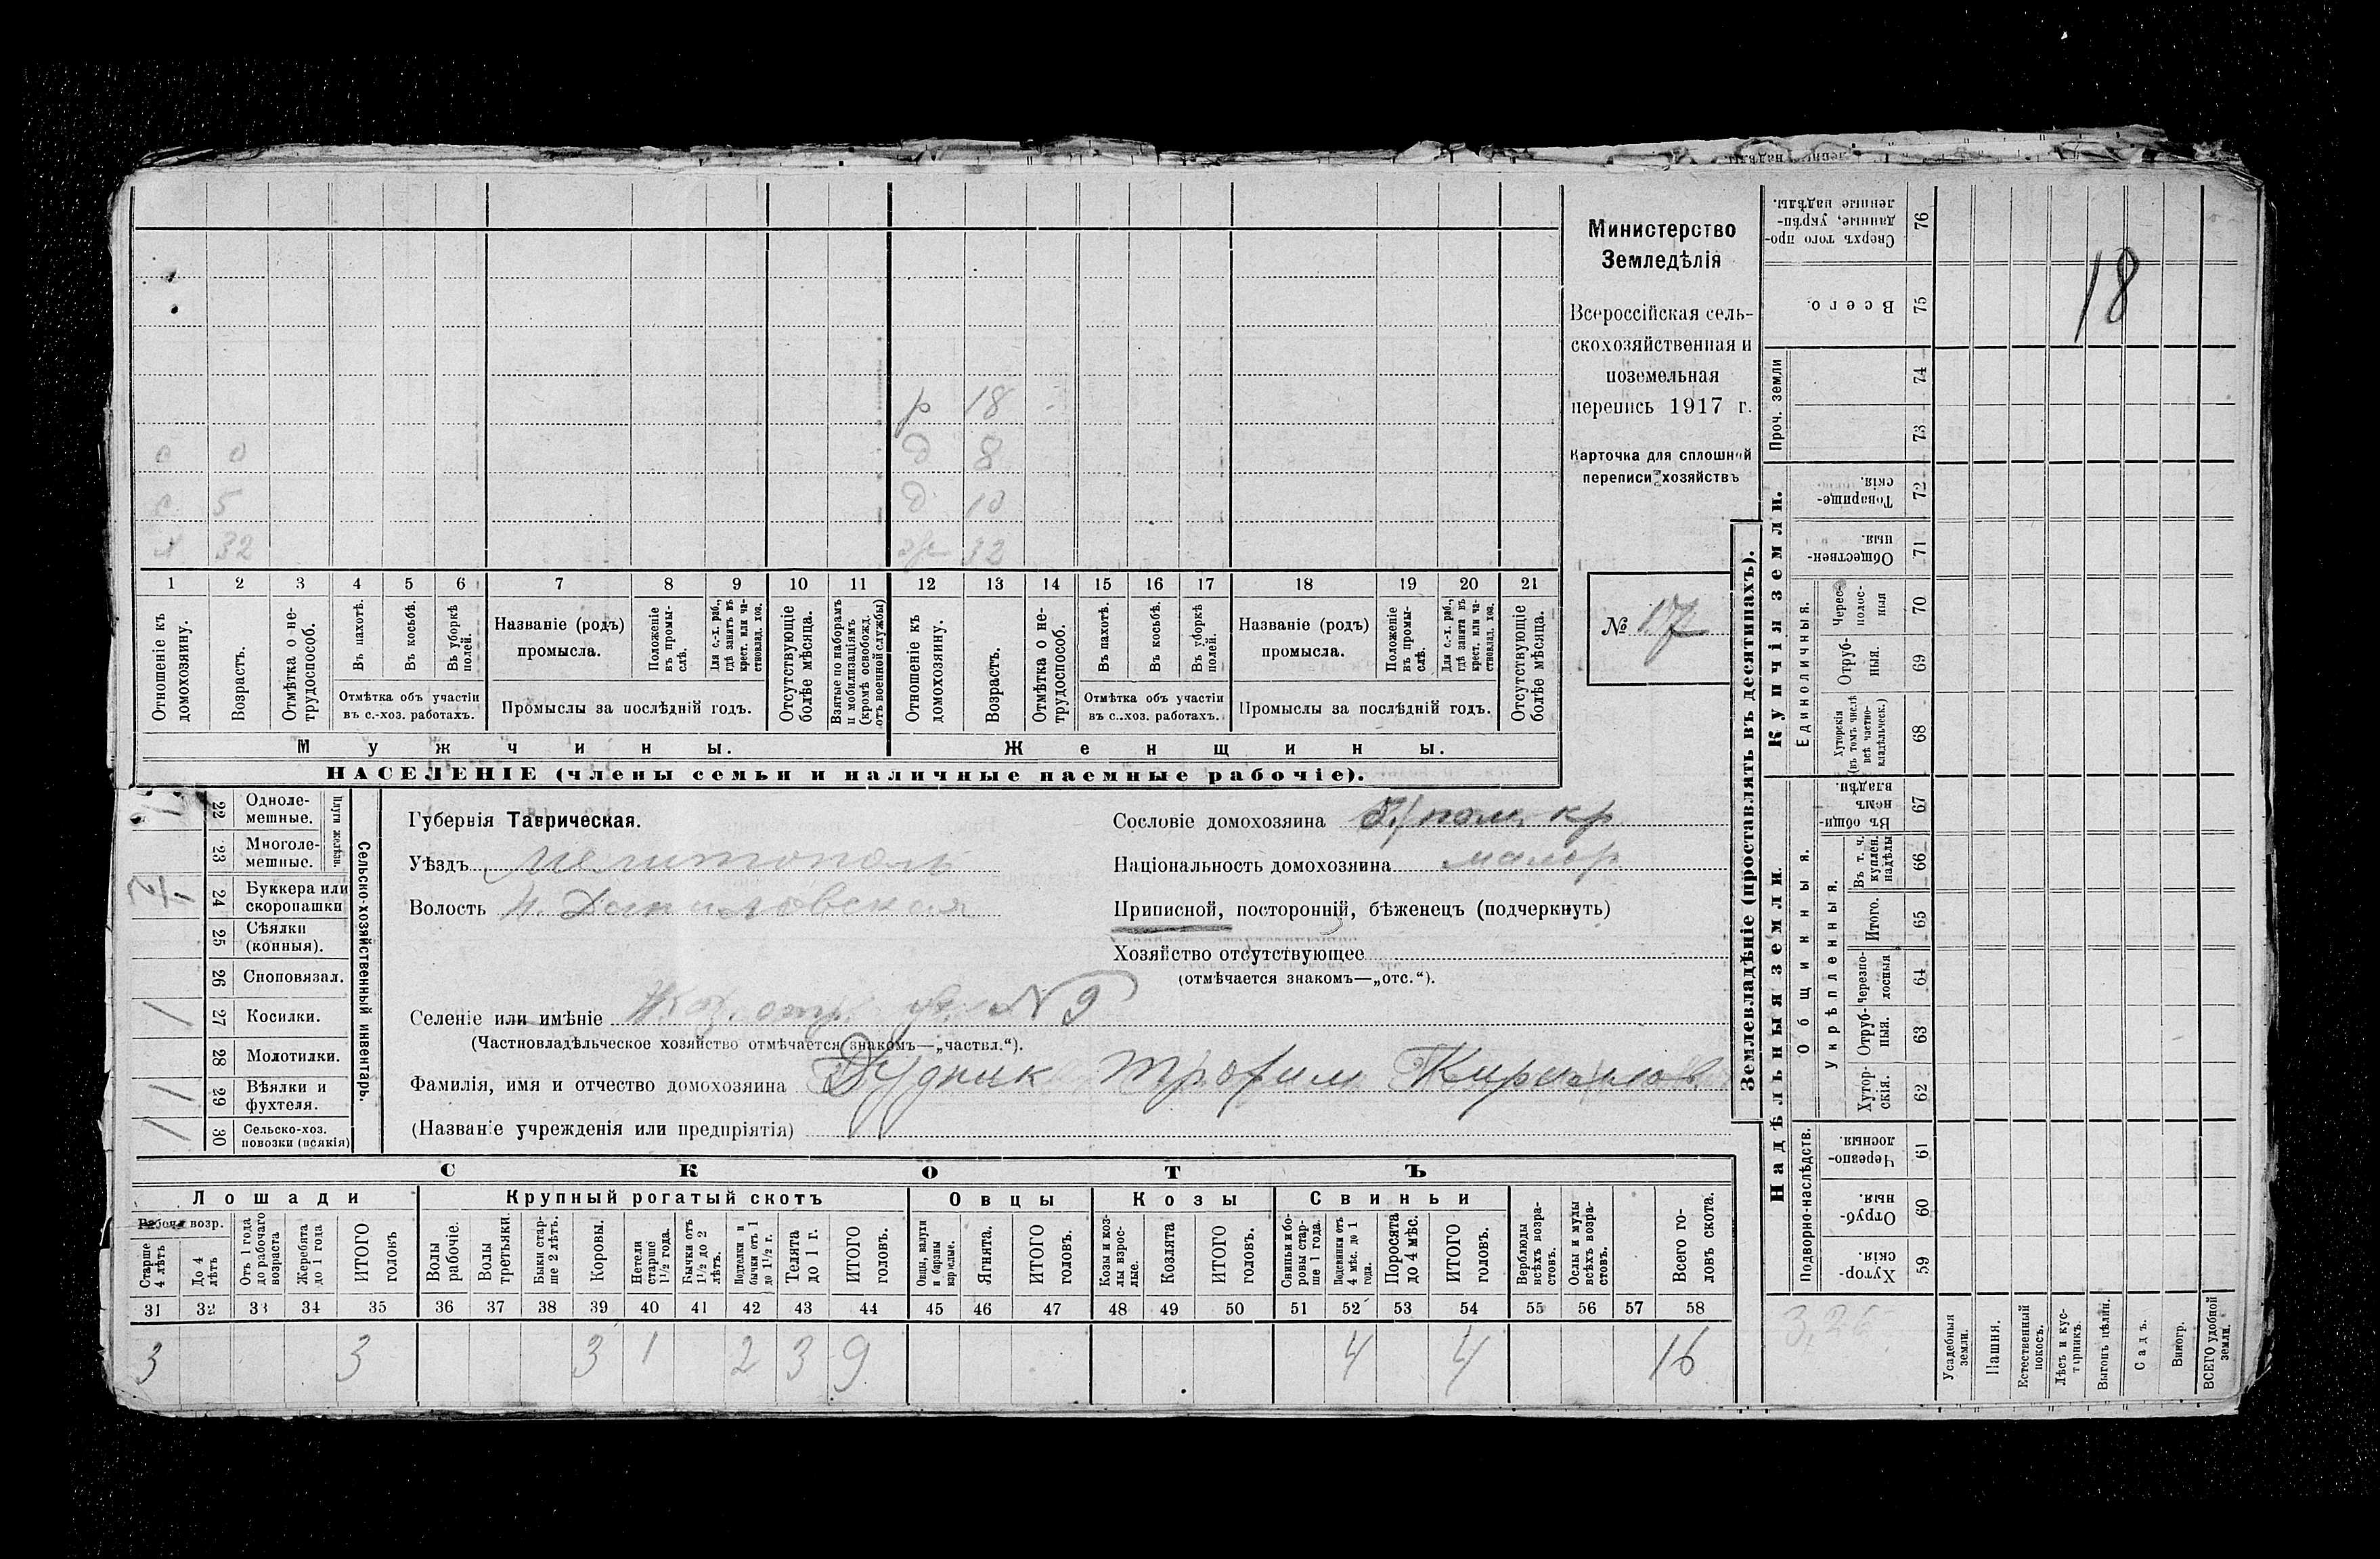 р 18
д 8
с 5 д 10
32 ж 32
1 2 3 4 5 6 7 8 9 10 11 12 13 14 15 16 17 18 19 20 21
Отношеніе къ домохозяину.
Возрастъ.
Отмѣтка о не-
трудоспособ.
Въ пахотѣ.
Въ косьбѣ.
Въ уборкѣ полей.
Отмѣтка объ участіи
въ с.-хоз. работахъ.
Названіе (родъ)
промысла.
Положеніе
въ промы-
слѣ.
Для с.-х. раб.,
гдѣ занятъ въ
крест. или ча-
стновлад. хоз.
Промыслы за послѣдній годъ.
Отсутствующіе
болѣе мѣсяца.
Взятые по наборамъ
и мобилизаціямъ
(кромѣ освобожд.
отъ военной службы)
Отношеніе къ
домохозяину.
Возрастъ.
Отмѣтка о не-
трудоспособ.
Въ пахотѣ.
Въ косьбѣ.
Въ уборкѣ
полей.
Отмѣтка объ участіи
въ с.-хоз. работахъ.
Названіе (родъ)
промысла.
Положеніе
въ промы-
слѣ.
Для с.-х. раб.,
гдѣ занята въ
крест. или ча-
стновлад. хоз.
Промыслы за послѣдній годъ.
Отсутствующіе
болѣе мѣсяца.
Мужчины.
Женщины.
НАСЕЛЕНІЕ (члены семьи и наличные наемные рабочіе).
Министерство
Земледѣлія
Всероссійская сель-
скохозяйственная и
поземельная
перепись 1917 г.
Карточка для сплошной
переписи хозяйствъ
№ 17
22 Одноле-
мешные.
23 Многоле-
мешные.
Плуги желѣзн.
24 Буккера или
скоропашки
25 Сѣялки
(конныя).
26 Сноповязал.
27 Косилки.
28 Молотилки.
29 Вѣялки и
фухтеля.
30 Сельско-хоз.
повозки (всякія)
Сельско-хозяйственный инвентарь.
Губернія Таврическая.
Уѣздъ Мелитополь
Волость Н. Даниловская
Сословіе домохозяина кр
Національность домохозяина малор
Приписной, посторонній, бѣженецъ (подчеркнуть)
Хозяйство отсутствующее
(отмѣчается знакомъ—„отс.“).
Селеніе или имѣніе № 9
(Частновладѣльческое хозяйство отмѣчается знакомъ—„частвл.“).
Фамилія, имя и отчество домохозяина Дудник Трофим Кирилов
(Названіе учрежденія или предпріятія)
СКОТЪ
Лошади
Крупный рогатый скотъ
Овцы
Козы
Свиньи
Рабочa возр.
Старше
4 лѣтъ
До 4
лѣтъ
Отъ 1 года
до рабочаго
возраста
Жеребята
до 1 года
ИТОГО
головъ
Волы
рабочіе.
Волы
третьяки.
Быки стар-
ше 2 лѣтъ.
Коровы.
Нетели
старше
1½ года.
Бычки отъ
1½ до 2
лѣтъ.
Подтелки и
бычки отъ 1
до 1½ г.
Телята
до 1 г.
ИТОГО
головъ.
Овцы, валухи
и бараны
взрослые.
Ягнята.
ИТОГО
головъ.
Козы и коз-
лы взрос-
лые.
Козлята
ИТОГО
головъ.
Свиньи и бо-
ровы стар-
ше 1 года.
Подсвинки отъ
4 мѣс. до 1
года.
Поросята
до 4 мѣс.
ИТОГО
головъ.
Верблюды
всѣхъ возра-
стовъ.
Ослы и мулы
всѣхъ возра-
стовъ.
Всего го-
ловъ скота.
31 32 33 34 35 36 37 38 39 40 41 42 43 44 45 46 47 48 49 50 51 52 53 54 55 56 57 58
3 3 3 1 2 3 9 4 4 16
Землевладѣніе (проставлять въ десятинахъ).
Купчія земли.
Сверхъ того про-
данные, укрѣп-
ленные надѣлы. 76
18
Всего. 75
Проч. земли
74
73
Товарище-
скія. 72
Обществен-
ныя. 71
Единоличныя.
Черес-
полос-
ныя 70
Отруб-
ныя. 69
Хуторскія
(въ томъ числѣ
всѣ частно-
владѣльческ.) 68
Надѣльныя земли.
Общинныя.
Въ общи-
немъ
владѣн. 67
Укрѣпленныя.
Въ т. ч.
куплен.
надѣлы 66
Итого. 65
Черезпо-
лосныя 64
Отруб-
ныя. 63
Хутор-
скія. 62
Подворно-наслѣдств.
Черезпо-
лосныя. 61
Отруб-
ныя. 60
Хутор-
скія. 59
Усадебныя
земли.
Пашня.
Естественный
покосъ.
Лѣсъ и кус-
тарникъ.
Выгонъ цѣлин.
Садъ.
Виногр.
ВСЕГО удобной
земли.